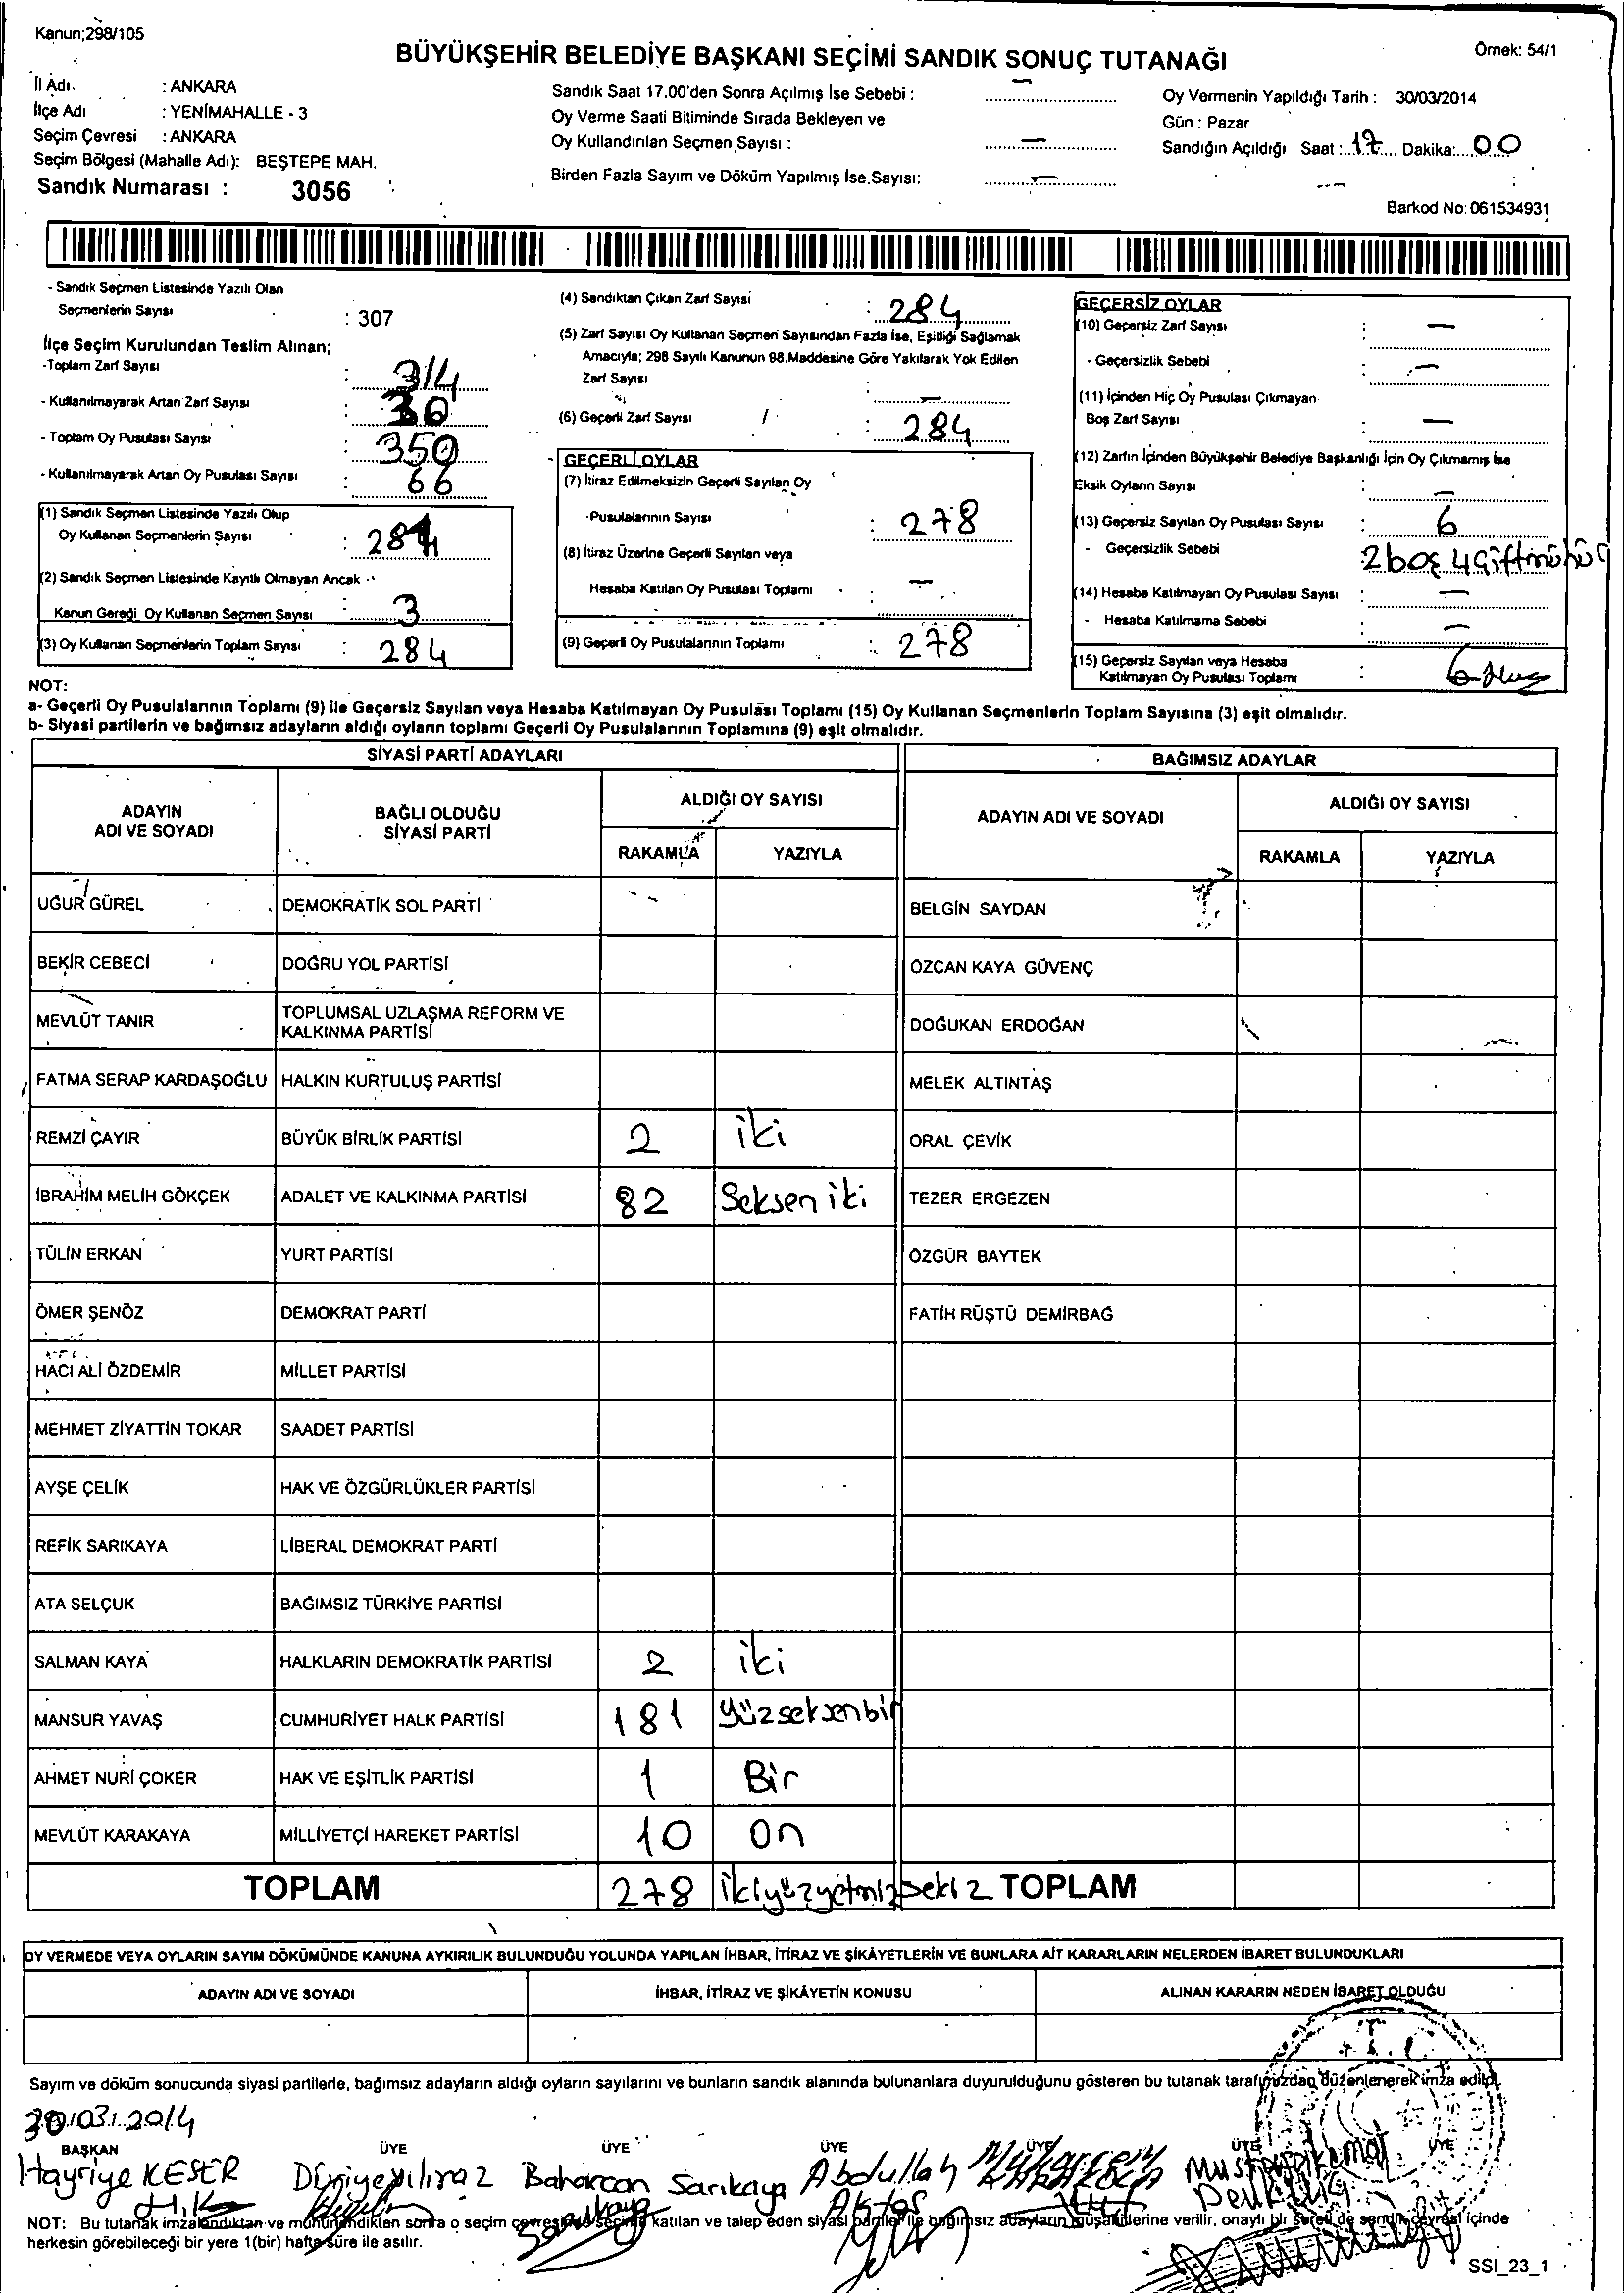 Kanun;298/105
BÜYÜKŞEHİR BELEDİYE BAŞKANI SEÇİMİ SANDIK SONUÇ TUTANAĞI
Örnek: 54/1
İl Adı. : ANKARA
İlçe Adı : YENİMAHALLE - 3
Seçim Çevresi : ANKARA
Seçim Bölgesi (Mahalle Adı): BEŞTEPE MAH.
Sandık Numarası : 3056
Sandık Saat 17.00'den Sonra Açılmış İse Sebebi : —
Oy Verme Saati Bitiminde Sırada Bekleyen ve
Oy Kullandırılan Seçmen Sayısı : —
Birden Fazla Sayım ve Döküm Yapılmış İse,Sayısı: —
Oy Vermenin Yapıldığı Tarih : 30/03/2014
Gün : Pazar
Sandığın Açıldığı Saat : 17 Dakika: 00
Barkod No: 061534931
- Sandık Seçmen Listesinde Yazılı Olan
Seçmenlerin Sayısı : 307
İlçe Seçim Kurulundan Teslim Alınan;
-Toplam Zarf Sayısı : 314
- Kullanılmayarak Artan Zarf Sayısı : 30
- Toplam Oy Pusulası Sayısı : 350
- Kullanılmayarak Artan Oy Pusulası Sayısı : 66
(1) Sandık Seçmen Listesinde Yazılı Olup
Oy Kullanan Seçmenlerin Sayısı :
(2) Sandık Seçmen Listesinde Kayıtlı Olmayan Ancak
Kanun Gereği Oy Kullanan Seçmen Sayısı : 3
(3) Oy Kullanan Seçmenlerin Toplam Sayısı : 284
(4) Sandıktan Çıkan Zarf Sayısı : 284
(5) Zarf Sayısı Oy Kullanan Seçmen Sayısından Fazla İse, Eşitliği Sağlamak
Amacıyla; 298 Sayılı Kanunun 98.Maddesine Göre Yakılarak Yok Edilen
Zarf Sayısı : —
(6) Geçerli Zarf Sayısı : 284
GEÇERLİ OYLAR
(7) İtiraz Edilmeksizin Geçerli Sayılan Oy
-Pusulalarının Sayısı : 278
(8) İtiraz Üzerine Geçerli Sayılan veya
Hesaba Katılan Oy Pusulası Toplamı : —
(9) Geçerli Oy Pusulalarının Toplamı : 278
GEÇERSİZ OYLAR
(10) Geçersiz Zarf Sayısı : —
- Geçersizlik Sebebi : —
(11) İçinden Hiç Oy Pusulası Çıkmayan
Boş Zarf Sayısı : —
(12) Zarfın İçinden Büyükşehir Belediye Başkanlığı İçin Oy Çıkmamış İse
Eksik Oyların Sayısı : —
(13) Geçersiz Sayılan Oy Pusulası Sayısı : 6
- Geçersizlik Sebebi 2 boş 4 çift mühür
(14) Hesaba Katılmayan Oy Pusulası Sayısı : —
- Hesaba Katılmama Sebebi : —
(15) Geçersiz Sayılan veya Hesaba
Katılmayan Oy Pusulası Toplamı : 6
NOT:
a- Geçerli Oy Pusulalarının Toplamı (9) ile Geçersiz Sayılan veya Hesaba Katılmayan Oy Pusulası Toplamı (15) Oy Kullanan Seçmenlerin Toplam Sayısına (3) eşit olmalıdır.
b- Siyasi partilerin ve bağımsız adayların aldığı oyların toplamı Geçerli Oy Pusulalarının Toplamına (9) eşit olmalıdır.
SİYASİ PARTİ ADAYLARI
BAĞIMSIZ ADAYLAR
ADAYIN ADI VE SOYADI
BAĞLI OLDUĞU SİYASİ PARTİ
ALDIĞI OY SAYISI
ADAYIN ADI VE SOYADI
ALDIĞI OY SAYISI
RAKAMLA YAZIYLA RAKAMLA YAZIYLA
UĞUR GÜREL DEMOKRATİK SOL PARTİ BELGİN SAYDAN
BEKİR CEBECİ DOĞRU YOL PARTİSİ ÖZCAN KAYA GÜVENÇ
MEVLÜT TANIR TOPLUMSAL UZLAŞMA REFORM VE KALKINMA PARTİSİ DOĞUKAN ERDOĞAN
FATMA SERAP KARDAŞOĞLU HALKIN KURTULUŞ PARTİSİ MELEK ALTINTAŞ
REMZİ ÇAYIR BÜYÜK BİRLİK PARTİSİ 2 iki ORAL ÇEVİK
İBRAHİM MELİH GÖKÇEK ADALET VE KALKINMA PARTİSİ 82 Seksen iki TEZER ERGEZEN
TÜLİN ERKAN YURT PARTİSİ ÖZGÜR BAYTEK
ÖMER ŞENÖZ DEMOKRAT PARTİ FATİH RÜŞTÜ DEMİRBAĞ
HACI ALİ ÖZDEMİR MİLLET PARTİSİ
MEHMET ZİYATTİN TOKAR SAADET PARTİSİ
AYŞE ÇELİK HAK VE ÖZGÜRLÜKLER PARTİSİ
REFİK SARIKAYA LİBERAL DEMOKRAT PARTİ
ATA SELÇUK BAĞIMSIZ TÜRKİYE PARTİSİ
SALMAN KAYA HALKLARIN DEMOKRATİK PARTİSİ 2 iki
MANSUR YAVAŞ CUMHURİYET HALK PARTİSİ 181 yüzseksenbir
AHMET NURİ ÇOKER HAK VE EŞİTLİK PARTİSİ 1 Bir
MEVLÜT KARAKAYA MİLLİYETÇİ HAREKET PARTİSİ 10 on
TOPLAM 278 ikiyüzyetmişsekiz TOPLAM
OY VERMEDE VEYA OYLARIN SAYIM DÖKÜMÜNDE KANUNA AYKIRILIK BULUNDUĞU YOLUNDA YAPILAN İHBAR, İTİRAZ VE ŞİKÂYETLERİN VE BUNLARA AİT KARARLARIN NELERDEN İBARET BULUNDUKLARI
ADAYIN ADI VE SOYADI İHBAR, İTİRAZ VE ŞİKÂYETİN KONUSU ALINAN KARARIN NEDEN İBARET OLDUĞU
T.C.
Sayım ve döküm sonucunda siyasi partilerle, bağımsız adayların aldığı oyların sayılarını ve bunların sandık alanında bulunanlara duyurulduğunu gösteren bu tutanak tarafımızdan düzenlenerek imza edildi.
30/03/2014
BAŞKAN ÜYE ÜYE ÜYE ÜYE ÜYE ÜYE
Hayriye KESER Düriye yılmaz Baharcan Sarıkaya Abdullah Aktaş Mustafa Kemal
NOT: Bu tutanak imzalandıktan ve mühürlendikten sonra o seçim çevresinde seçime katılan ve talep eden siyasi partiler ile bağımsız adayların müşahitlerine verilir, onaylı bir sureti de sandık çevresi içinde
herkesin görebileceği bir yere 1(bir) hafta süre ile asılır.
SSI_23_1